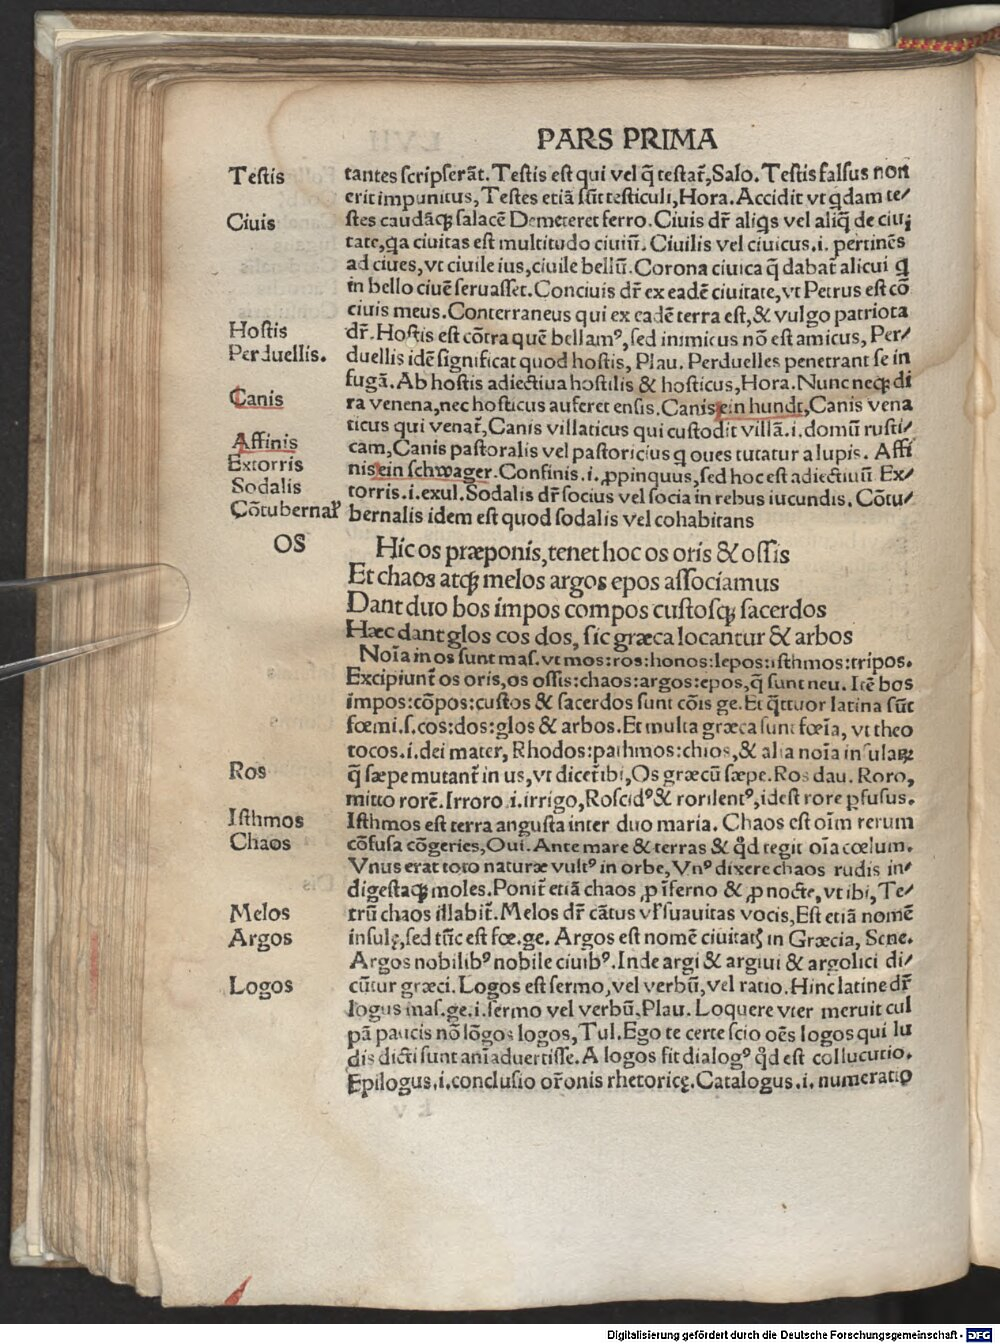 PARS PRIMA
Testis tantes scripserãt. Testis est qui vel q̃ testat᷑, Salo. Testis falsus non
erit impunitus, Testes etiã sũt testiculi, Hora. Accidit vt qdam te/
Ciuis stes caudãqꝫ salacẽ Demeteret ferro. Ciuis dr̃ aliqs vel aliq̃ de ciui
tate, qa ciuitas est multitudo ciuiũ. Ciuilis vel ciuicus .i. pertinẽs
ad ciues, vt ciuile ius, ciuile bellũ. Corona ciuica q̃ dabat᷑ alicui q
in bello ciuẽ seruasset. Conciuis dr̃ ex eadẽ ciuitate, vt Petrus est cõ
ciuis meus. Conterraneus qui ex eadẽ terra est, & vulgo patriota
Hostis dr̃. Hostis est cõtra quẽ bellamꝰ, sed inimicus nõ est amicus, Per/
Perduellis. duellis idẽ significat quod hostis, Plau. Perduelles penetrant se in
fugã. Ab hostis adiectiua hostilis & hosticus, Hora. Nunc neqꝫ di
Canis ra venena, nec hosticus auferet ensis. Canis ein hundt, Canis vena
ticus qui venat᷑, Canis villaticus qui custodit villã .i. domũ rusti/
Affinis cam, Canis pastoralis vel pastoricius q oues tutatur a lupis. Affi
Extorris nis ein schwager. Confinis .i. ꝓpinquus, sed hoc est adiectiuũ. Ex/
Sodalis torris .i. exul. Sodalis dr̃ socius vel socia in rebus iucundis. Cõtu/
Cõtubernal᷑ bernalis idem est quod sodalis vel cohabitans
OS Hic os præponis, tenet hoc os oris & ossis
Et chaos atqꝫ melos argos epos associamus
Dant duo bos impos compos custosqꝫ sacerdos
Hæc dant glos cos dos, sic græca locantur & arbos
Noĩa in os sunt mas. vt mos: ros: honos: lepos: isthmos: tripos.
Excipiunt᷑ os oris, os ossis: chaos: argos: epos, q̃ sunt neu. Itẽ bos
impos: cõpos: custos & sacerdos sunt cõis ge. Et q̃ttuor latina sũt
fœmi. s. cos: dos: glos & arbos. Et multa græca sunt fœĩa, vt theo
tocos .i. dei mater, Rhodos: pathmos: chios, & alia noĩa insulaꝝ
Ros q̃ sæpe mutant᷑ in us, vt dicet᷑ ibi, Os græcũ sæpe. Ros dau. Roro,
mitto rorẽ. Irroro .i. irrigo, Roscidꝰ & rorilentꝰ, idest rore ꝑfusus.
Isthmos Isthmos est terra angusta inter duo maria. Chaos est oĩm rerum
Chaos cõfusa cõgeries, Oui. Ante mare & terras & qd̃ tegit oĩa cœlum.
Vnus erat toto naturæ vultꝰ in orbe, Vnꝰ dixere chaos rudis in/
digestaqꝫ moles. Ponit᷑ etiã chaos ꝓ ĩferno & ꝓ nocte, vt ibi, Te/
Melos trũ chaos illabit᷑. Melos dr̃ cãtus vl᷑ suauitas vocis, Est etiã nomẽ
Argos insulę, sed tũc est fœ. ge. Argos est nomẽ ciuitatꝭ in Græcia, Sene.
Argos nobilibꝰ nobile ciuibꝰ. Inde argi & argiui & argolici di/
Logos cũtur græci. Logos est sermo, vel verbũ, vel ratio. Hinc latine dr̃
logus mas. ge. i. sermo vel verbũ, Plau. Loquere vter meruit cul
pã paucis nõ lõgos logos, Tul. Ego te certe scio oẽs logos qui lu
dis dicti sunt anĩaduertisse. A logos fit dialogꝰ qd̃ est collucutio.
Epilogus .i. conclusio or̃onis rhetoricę. Catalogus .i. numeratio
Digitalisierung gefördert durch die Deutsche Forschungsgemeinschaft - DFG